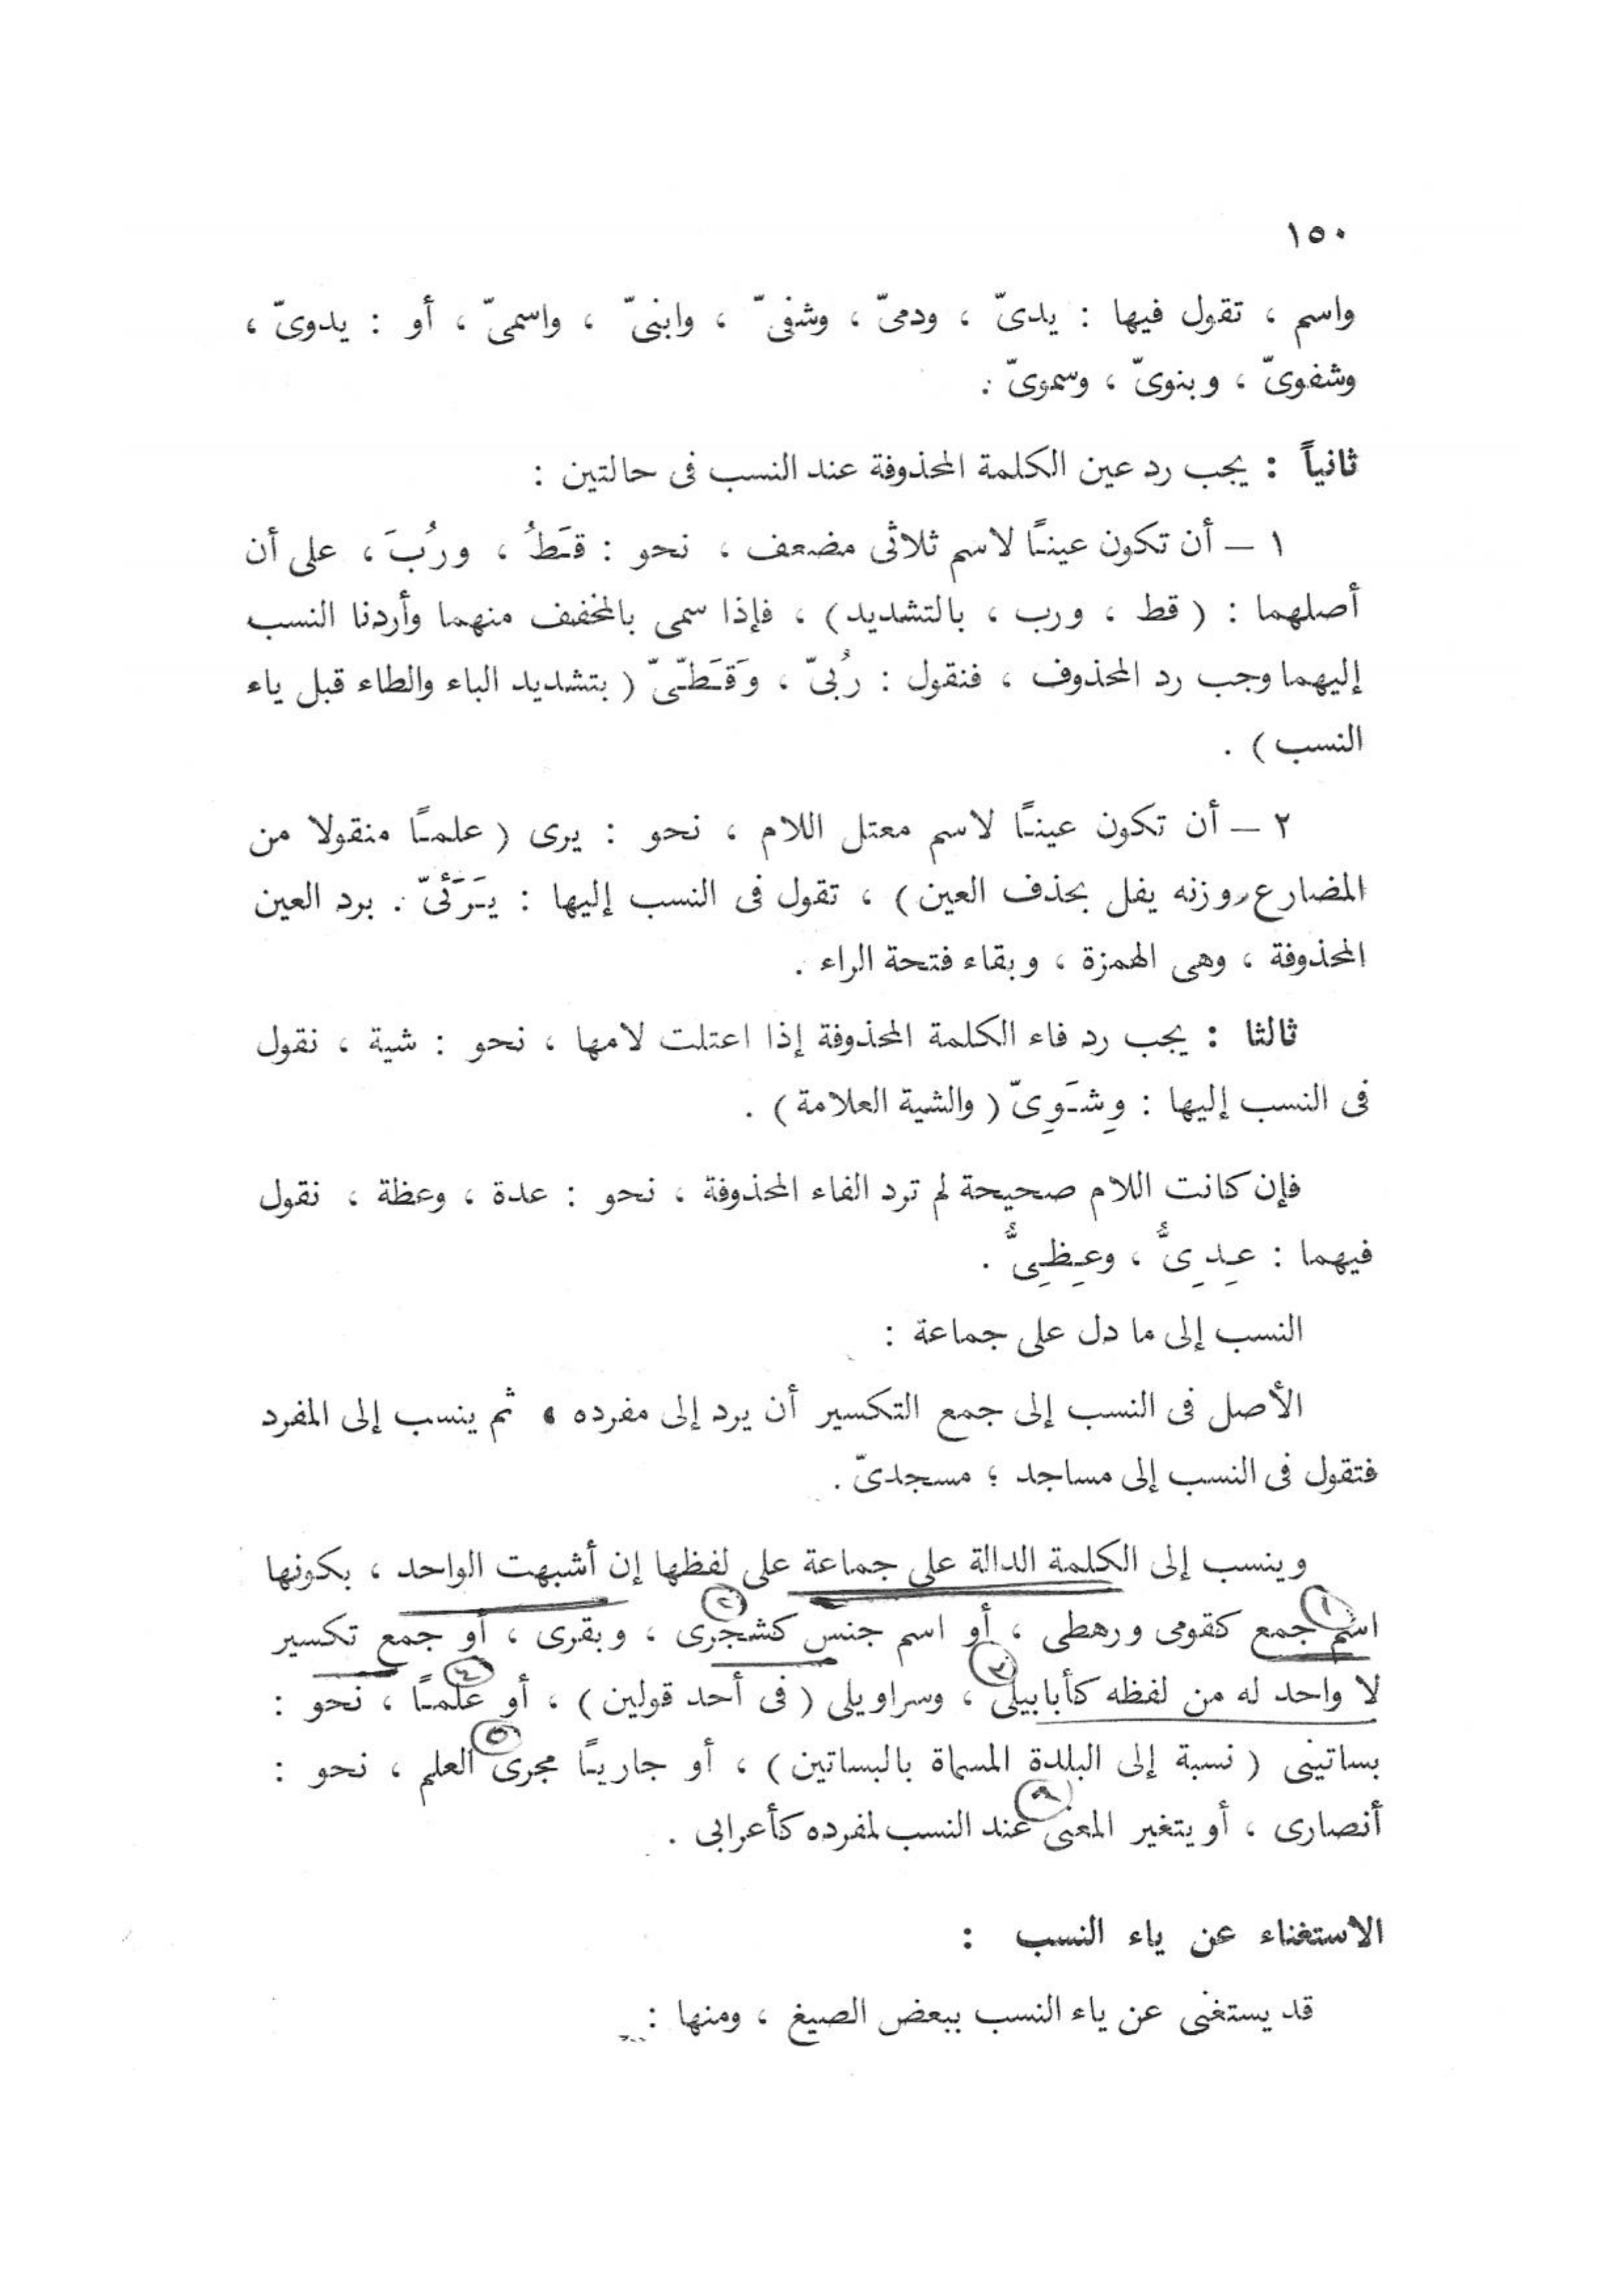 ١٥٠
واسم ، تقول فيها : يدىّ ، ودمىّ ، وشفىّ ، وابنىّ ، واسمىّ ، أو : يدوىّ ،
وشفوىّ ، وبنوىّ ، وسموىّ .
ثانياً : يجب رد عين الكلمة المحذوفة عند النسب فى حالتين :
١ – أن تكون عيناً لاسم ثلاثى مضعف ، نحو : قَطُ ، ورُبَ ، على أن
أصلهما : ( قط ، ورب ، بالتشديد ) ، فإذا سمى بالمخفف منهما وأردنا النسب
إليهما وجب رد المحذوف ، فنقول : رُبىّ ، وَقَطّىّ ( بتشديد الباء والطاء قبل ياء
النسب ) .
٢ – أن تكون عيناً لاسم معتل اللام ، نحو : يرى ( علماً منقولا من
المضارع وزنه يفل بحذف العين ) ، تقول فى النسب إليها : يَرَئىّ . برد العين
المحذوفة ، وهى الهمزة ، وبقاء فتحة الراء .
ثالثا : يجب رد فاء الكلمة المحذوفة إذا اعتلت لامها ، نحو : شية ، نقول
فى النسب إليها : وِشَوِىّ ( والشية العلامة ) .
فإن كانت اللام صحيحة لم ترد الفاء المحذوفة ، نحو : عدة ، وعظة ، نقول
فيهما : عِدِىُّ ، وعِظِىُّ .
النسب إلى ما دل على جماعة :
الأصل فى النسب إلى جمع التكسير أن يرد إلى مفرده ، ثم ينسب إلى المفرد
فتقول فى النسب إلى مساجد ؛ مسجدىّ .
وينسب إلى الكلمة الدالة على جماعة على لفظها إن أشبهت الواحد ، بكونها
١ ٢
اسم جمع كقومى ورهطى ، أو اسم جنس كشجرى ، وبقرى ، أو جمع تكسير
٣ ٤
لا واحد له من لفظه كأبابيلى ، وسراويلى ( فى أحد قولين ) ، أو علماً ، نحو :
٥
بساتينى ( نسبة إلى البلدة المسماة بالبساتين ) ، أو جارياً مجرى العلم ، نحو :
أنصارى ، أو يتغير المعنى عند النسب لمفرده كأعرابى .
الاستغناء عن ياء النسب :
قد يستغنى عن ياء النسب ببعض الصيغ ، ومنها :